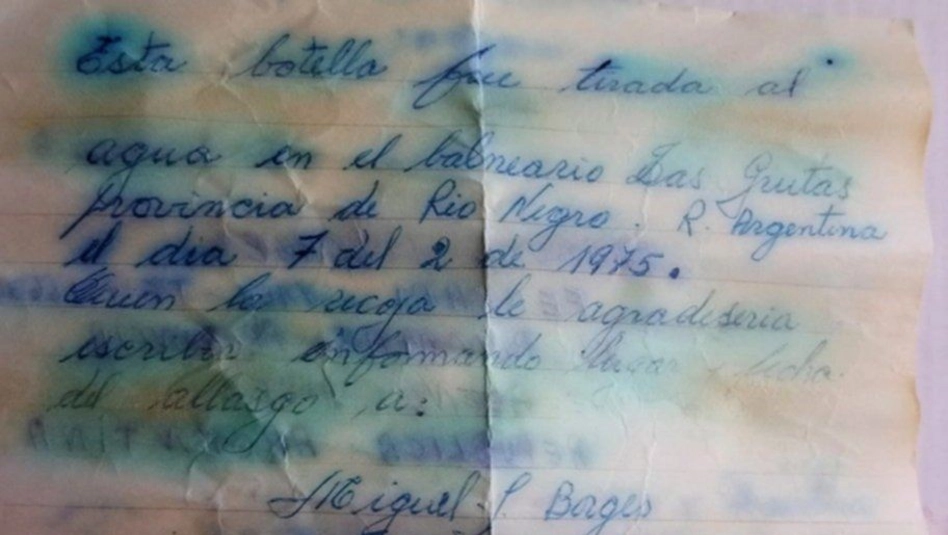 Esta botella fue tirada al
agua en el balneario Las Grutas
provincia de Rio Negro. R. Argentina
el dia 7 del 2 de 1975.
Quien la recoja le agradeseria
escribir informando lugar, fecha
del allasgo a:
REPUBLICA ARGENTINA
Miguel Borges